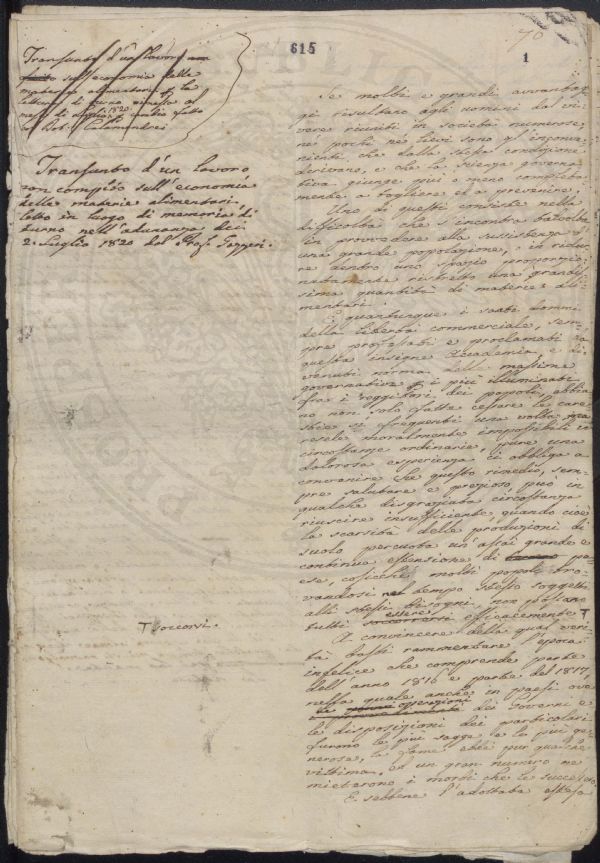 615
70
1
Transunto d'un lavoro non
sull'economia delle
materie alimentari
lettura di turno
mese di Luglio 1820
Dot. Calamandrei
Transunto d'un lavoro
non compito sull'economia
delle materie alimentari,
letto in luogo di memoria di
turno nell'adunanza dei
2. Luglio 1820 dal Prof. Gazzeri.
Se molti e grandi avvantag
gi risultano agli uomini dal vi-
vere riuniti in società numerose,
nè pochi nè lievi sono gl'inconve
nienti, che dalla stessa condizione
derivano, e che la scienza governa
tiva giunge ora meno completa
mente a togliere ed a prevenire.
Uno di questi consiste nella
difficoltà che s'incontra talvolta
in provvedere alla sussistenza d'
una grande popolazione, in ridur
re dentro uno spazio proporzio
natamente ristretto una grandis
sima quantità di materie ali-
mentari.
E quantunque i santi dommi
della libertà commerciale, sem-
pre professati e proclamati da
questa insigne Accademia, e di
venuti norma delle massime
governative i più illuminati
fra i reggitori dei popoli, abbia
no non solo fatte cessare le care
stie sì frequenti una volta, ma
resele moralmente impossibili in
circostanze ordinarie, pure una
dolorosa esperienza ci obbliga a
convenire che questo rimedio, sem-
pre salutare e prezioso, può in
qualche disgraziata circostanza
riuscire insufficiente, quando cioè
la scarsità delle produzioni di
suolo percuota un'assai grande e
continua estensione di pa-
ese, cosicchè molti popoli tro-
vandosi nel tempo stesso soggetti
alli stessi bisogni, non possano
tutti essere efficacemente T
T soccorsi.
A convincere della qual veri
tà basti rammentare l'epoca
infelice che comprende parte
dell'anno 1816 e parte del 1817,
nella quale anche in paesi ove
le operazioni dei Governi e
le disposizioni dei particolari
furono le più sagge e le più ge-
nerose, la fame ebbe pur qualche
vittima, ed un gran numero ne
mieterono i morbi che le successero.
E sebbene l'adottata estesa